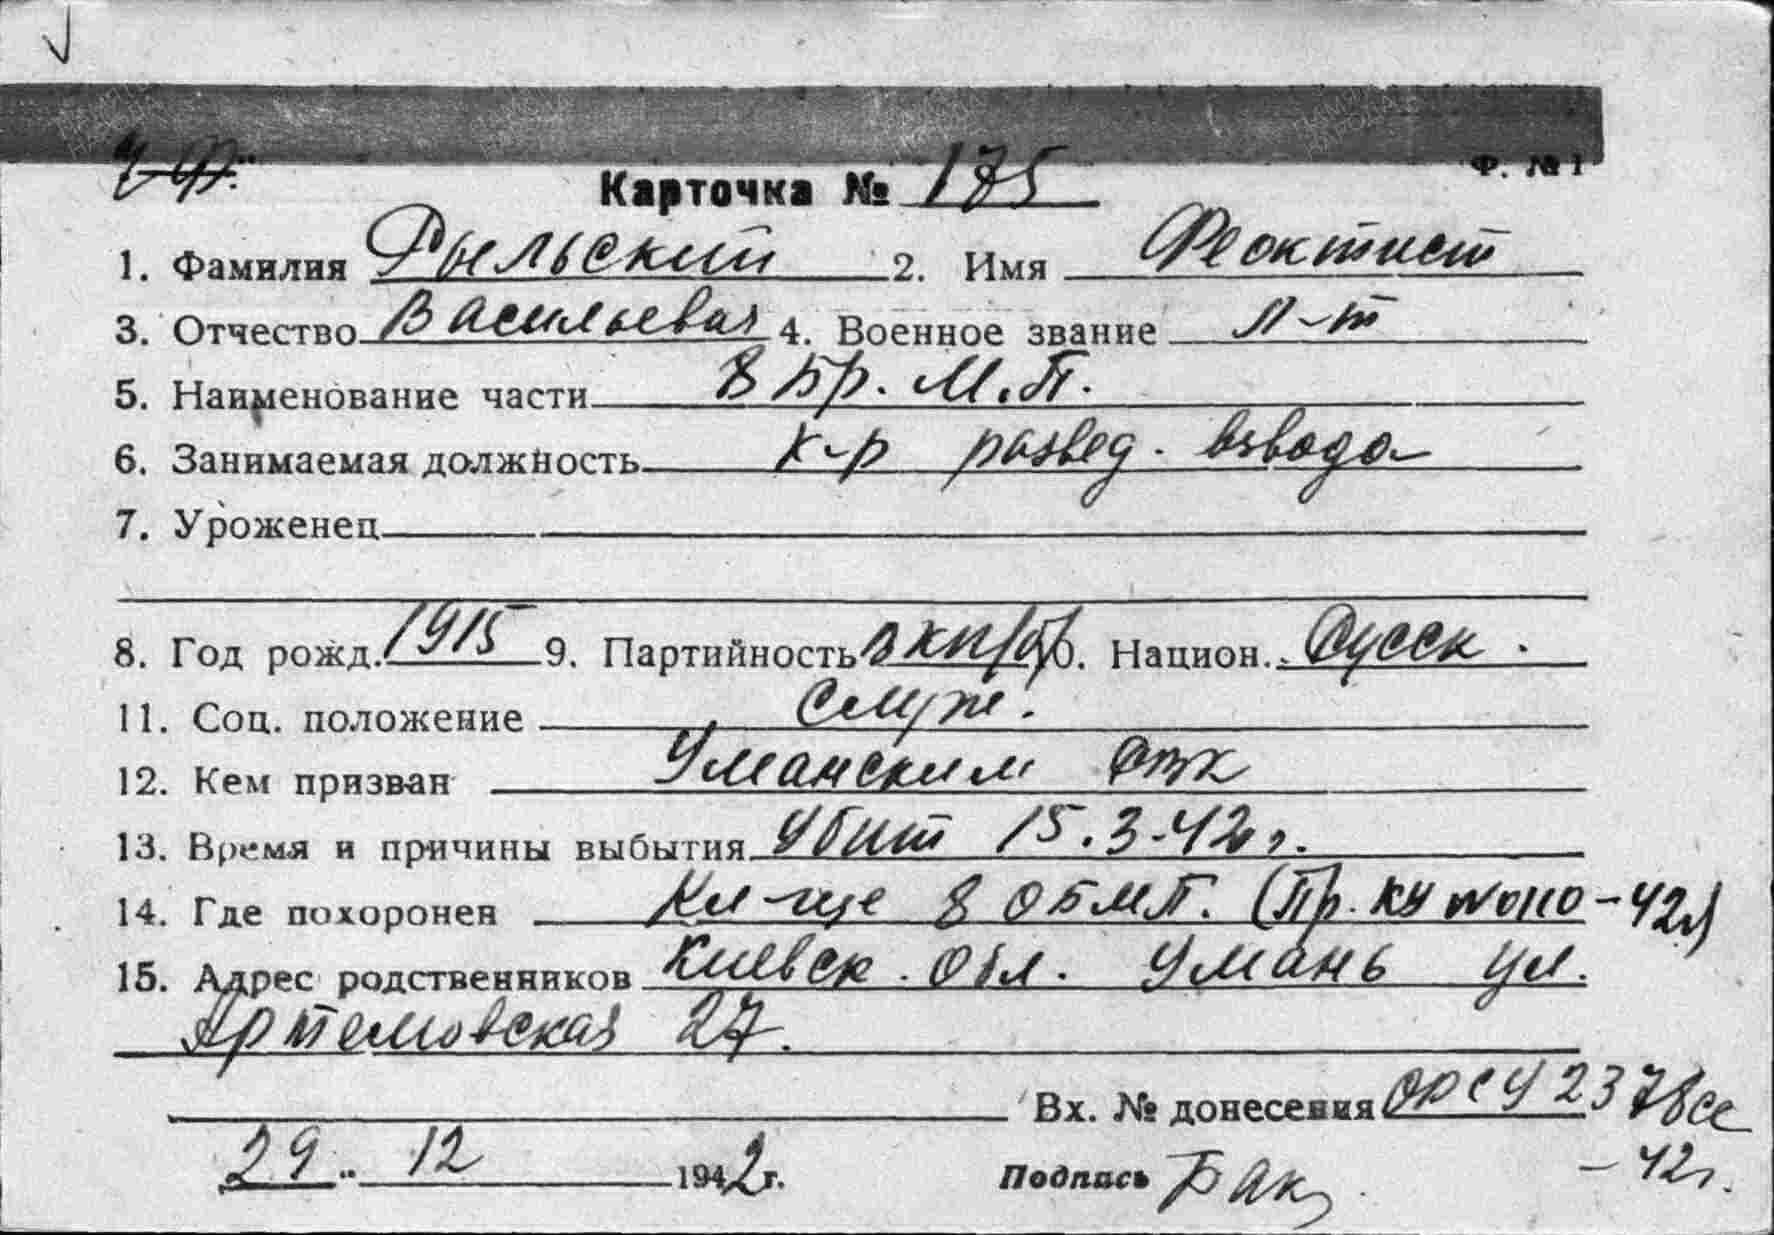 Ф. № 1
Карточка № 175
1. Фамилия Рыльский 2. Имя Феоктист
3. Отчество Васильевич 4. Военное звание л-т
5. Наименование части 8 Бр. М.П.
6. Занимаемая должность к-р развед. взвода
7. Уроженец
8. Год рожд. 1915 9. Партийность ВКП/б/ 10. Национ. Русск.
11. Соц. положение служ.
12. Кем призван Уманским
13. Время и причины выбытия Убит 15.3-42г.
14. Где похоронен Кл-ще 8 ОБМП. (Пр. КУ №0110-42г)
15. Адрес родственников Киевск. обл. Умань ул.
Артемовская 27.
Вх. № донесения 2378сс
-42г.
29 " 12 1942г. Подпись